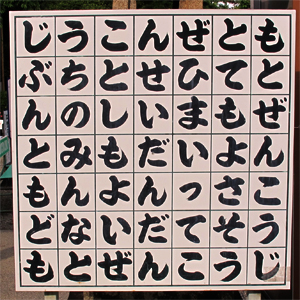 もとぜんこうじ
とてもよさそう
ぜひまいってこ
んせいだんだん
ことしもよいぜ
うちのみんなと
じぶんともども